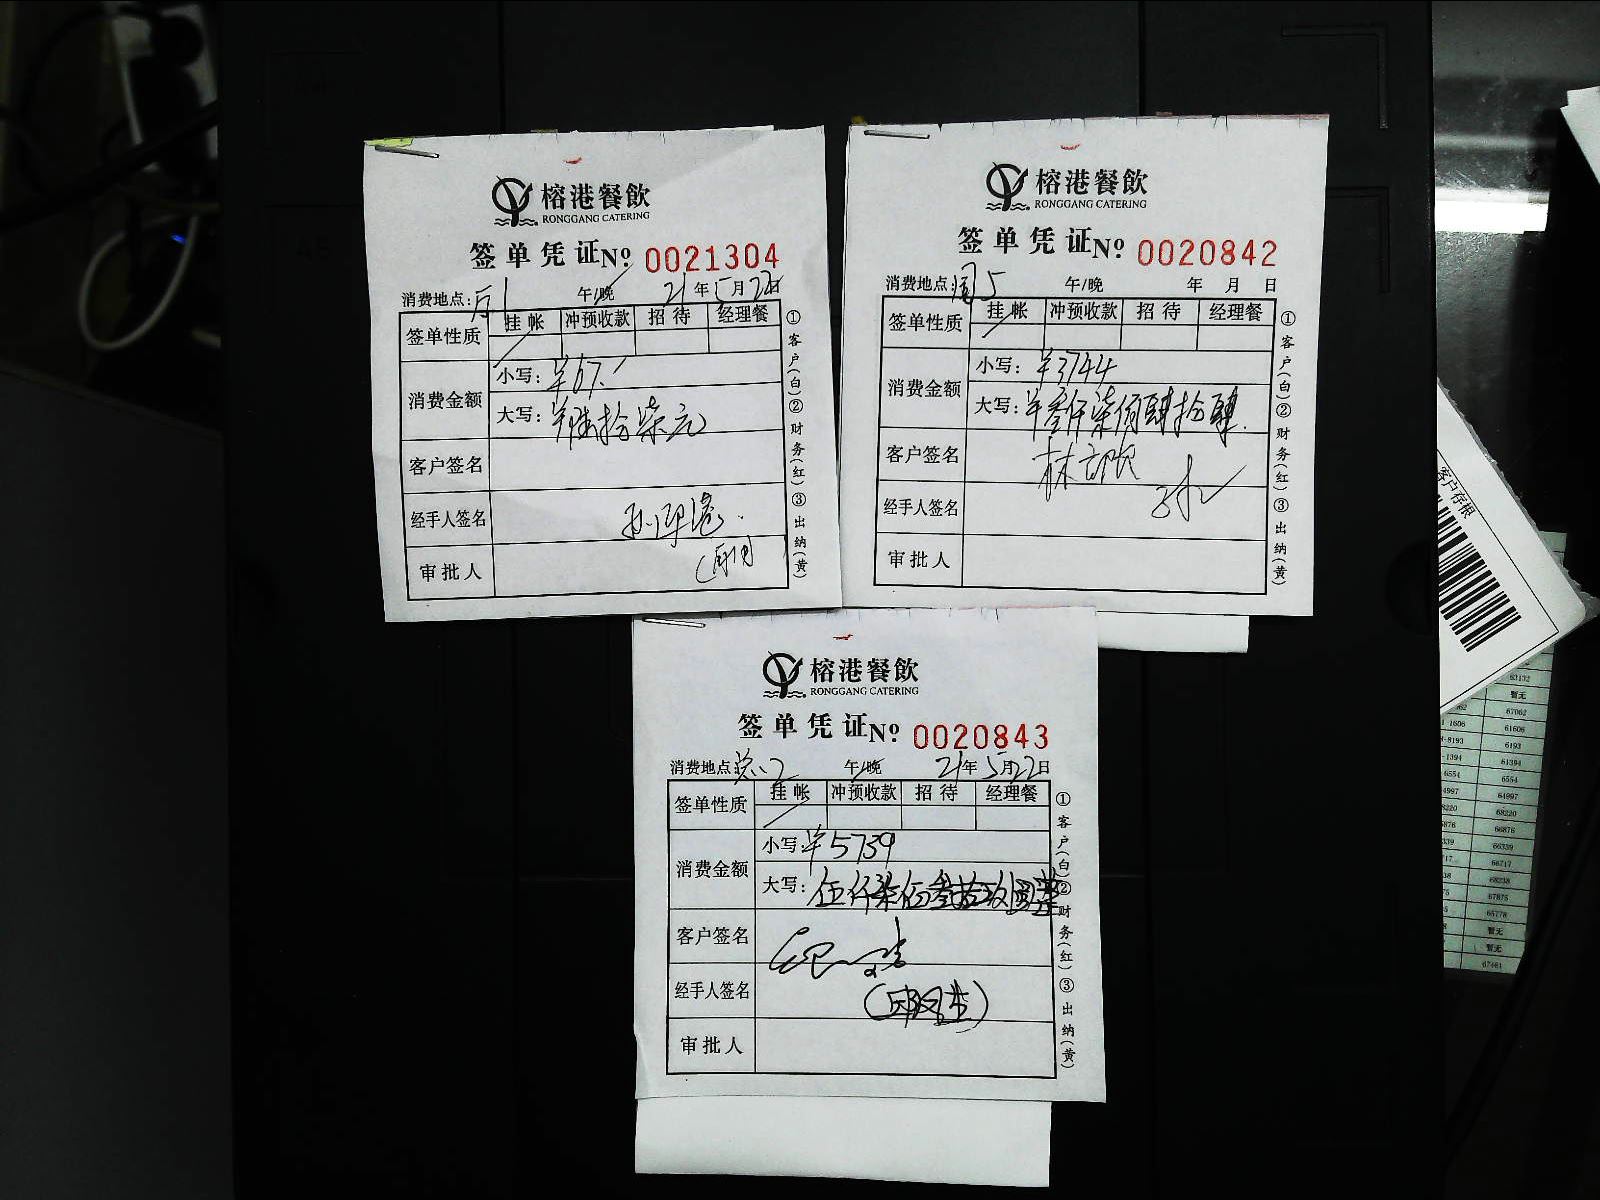 榕港餐飲
RONGGANG CATERING
签单凭证 № 0021304
消费地点: 午/晚 21年5月22日
签单性质 挂帐 冲预收款 招待 经理餐
消费金额 小写: ¥67.
大写: ¥陆拾柒元
客户签名
经手人签名
审批人
①客户(白)②财务(红)③出纳(黄)
榕港餐飲
RONGGANG CATERING
签单凭证 № 0020842
消费地点: 5 午/晚 年 月 日
签单性质 挂帐 冲预收款 招待 经理餐
消费金额 小写: ¥3744
大写: ¥叁仟柒佰肆拾肆
客户签名 林
经手人签名
审批人
①客户(白)②财务(红)③出纳(黄)
榕港餐飲
RONGGANG CATERING
签单凭证 № 0020843
消费地点: 午/晚 21年5月22日
签单性质 挂帐 冲预收款 招待 经理餐
消费金额 小写: ¥5739
大写: 伍仟柒佰叁拾玖圆整
客户签名
经手人签名
审批人
①客户(白)②财务(红)③出纳(黄)
客户存根
63132
暂无
67062
61606
6193
61394
6554
64997
68220
66876
66339
66717
68238
67875
65778
暂无
暂无
67461